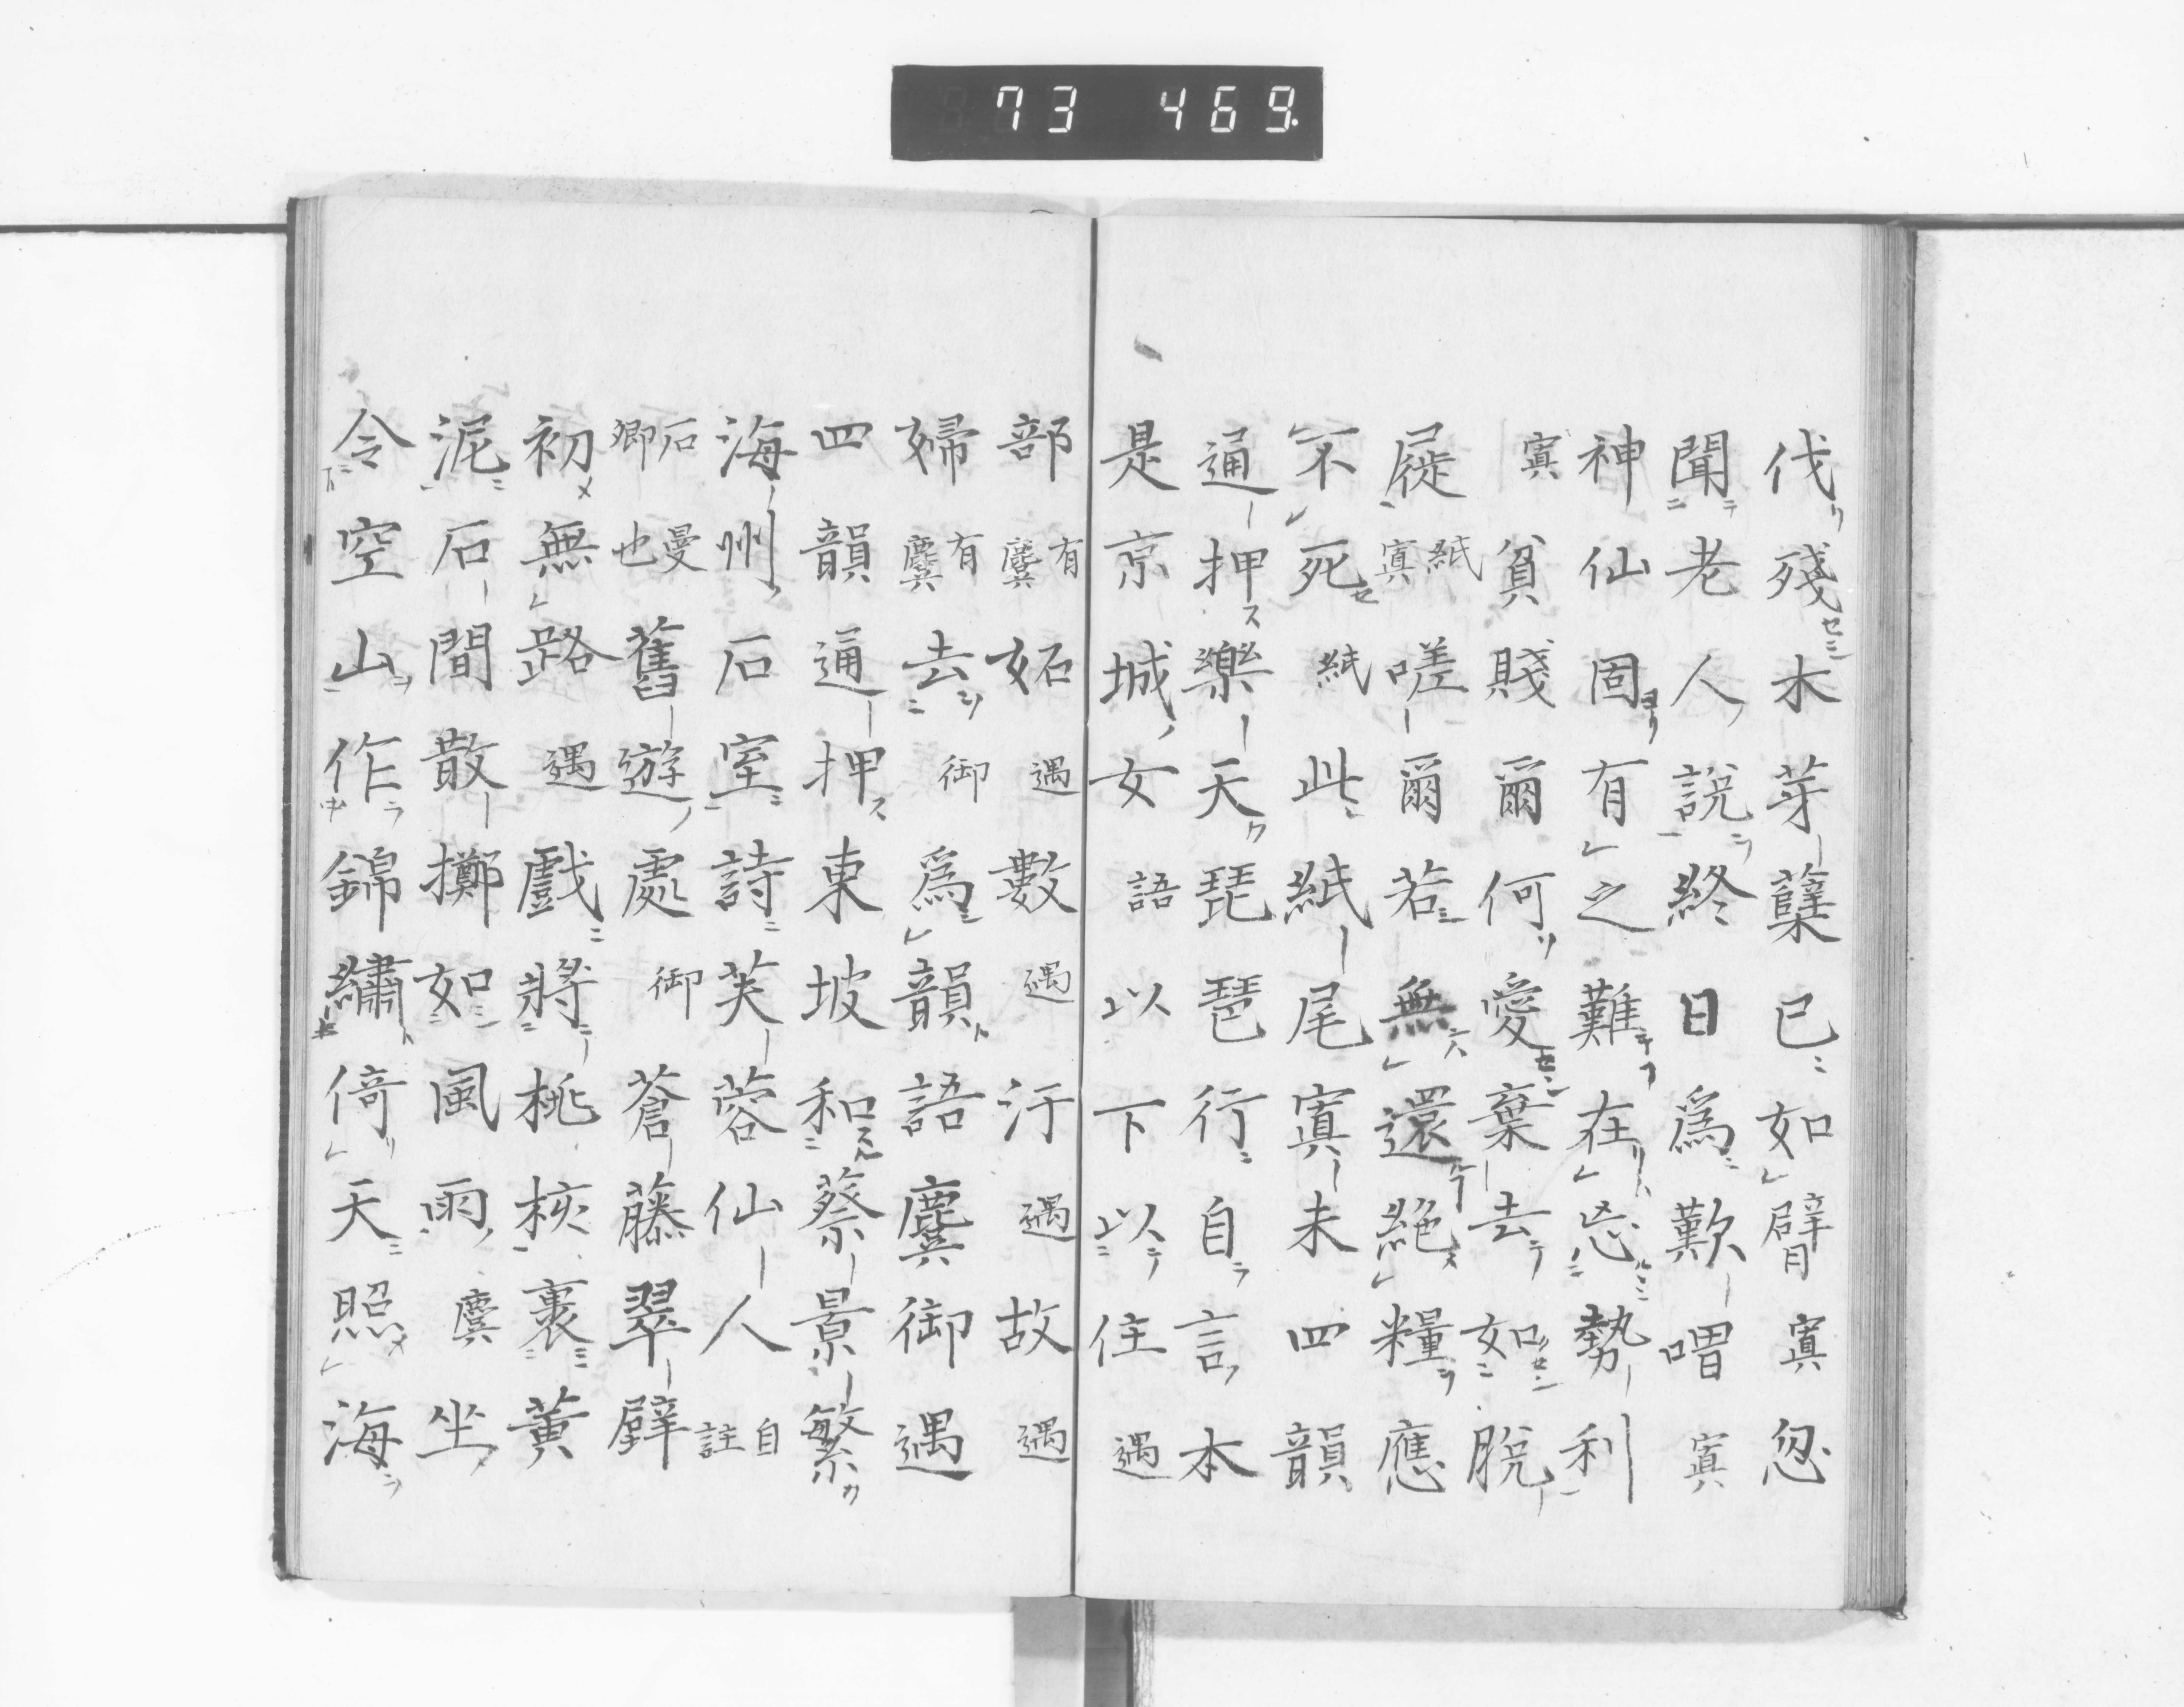 73 469.
伐殘木芽蘖已如臂寘忽
聞老人說終日爲歎喟寘
神仙固有之難在忘勢利
寘貧賤爾何愛棄去如脫
屣紙寘嗟爾若無還絶糧應
不死紙此紙尾寘未四韻
通押樂天琵琶行自言本
是京城女語以下以住遇
部有麌妬遇數遇汙遇故遇
婦有麌去御爲韻語麌御遇
四韻通押東坡和蔡景繁
海州石室詩芙蓉仙人自註
石曼卿也舊遊處御蒼藤翠壁
初無路遇戲將桃核裹黃
泥石間散擲如風雨麌坐
令空山作錦繡倚天照海